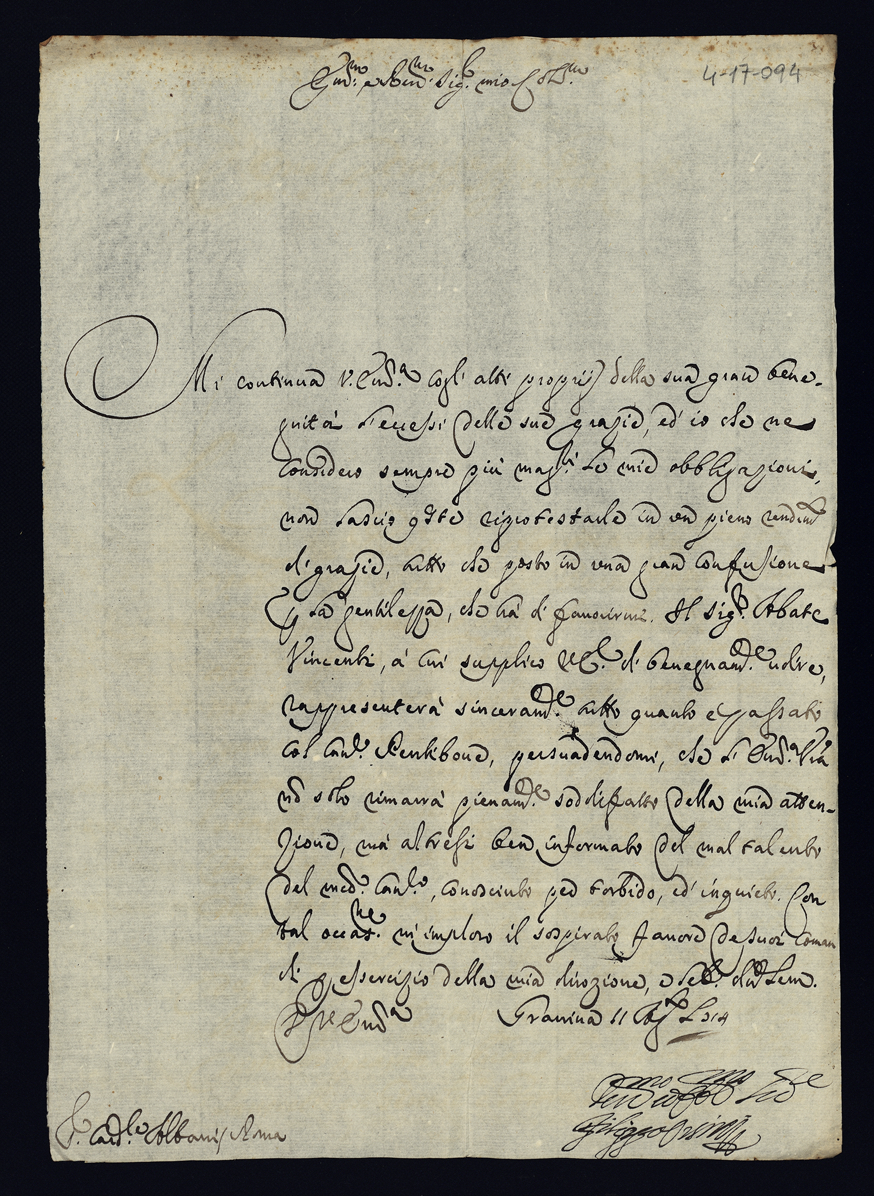 Em.mo e Rev.mo Sig.r mio Col.mo
4-17-094
Mi continua V. Em.a cogli atti proprij della sua gran bene-
gnità l'eccessi delle sue grazie, ed' io che ne
considero sempre più mag.ri le mie obbligazioni,
non lascio q.ste riprotestarle in un pieno rendim.to
di grazie, tutto che posto in una gran confusione
p la gentilezza, che hà di favorirmi. Il Sig.r Abate
Vincenti, à cui supplico V.E. di benegnam.te udire,
rappresenterà sinceram.te tutto quanto è passato
col Can.co Pentibone, persuadendomi, che l'Em.a V.ra
nõ solo rimarrà pienam.te soddisfatto della mia atten-
zione, mà altresì ben informato del mal talento
del med.o Can.co, conosciuto p torbido, ed' inquieto. Con
tal occas.ne m'imploro il sospirato favore de suoi coman
di p essercizio della mia divozione, e
D V.ra Em.a Gravina 11 1714
Filippo Orsini
S. Card.le Albani / Roma